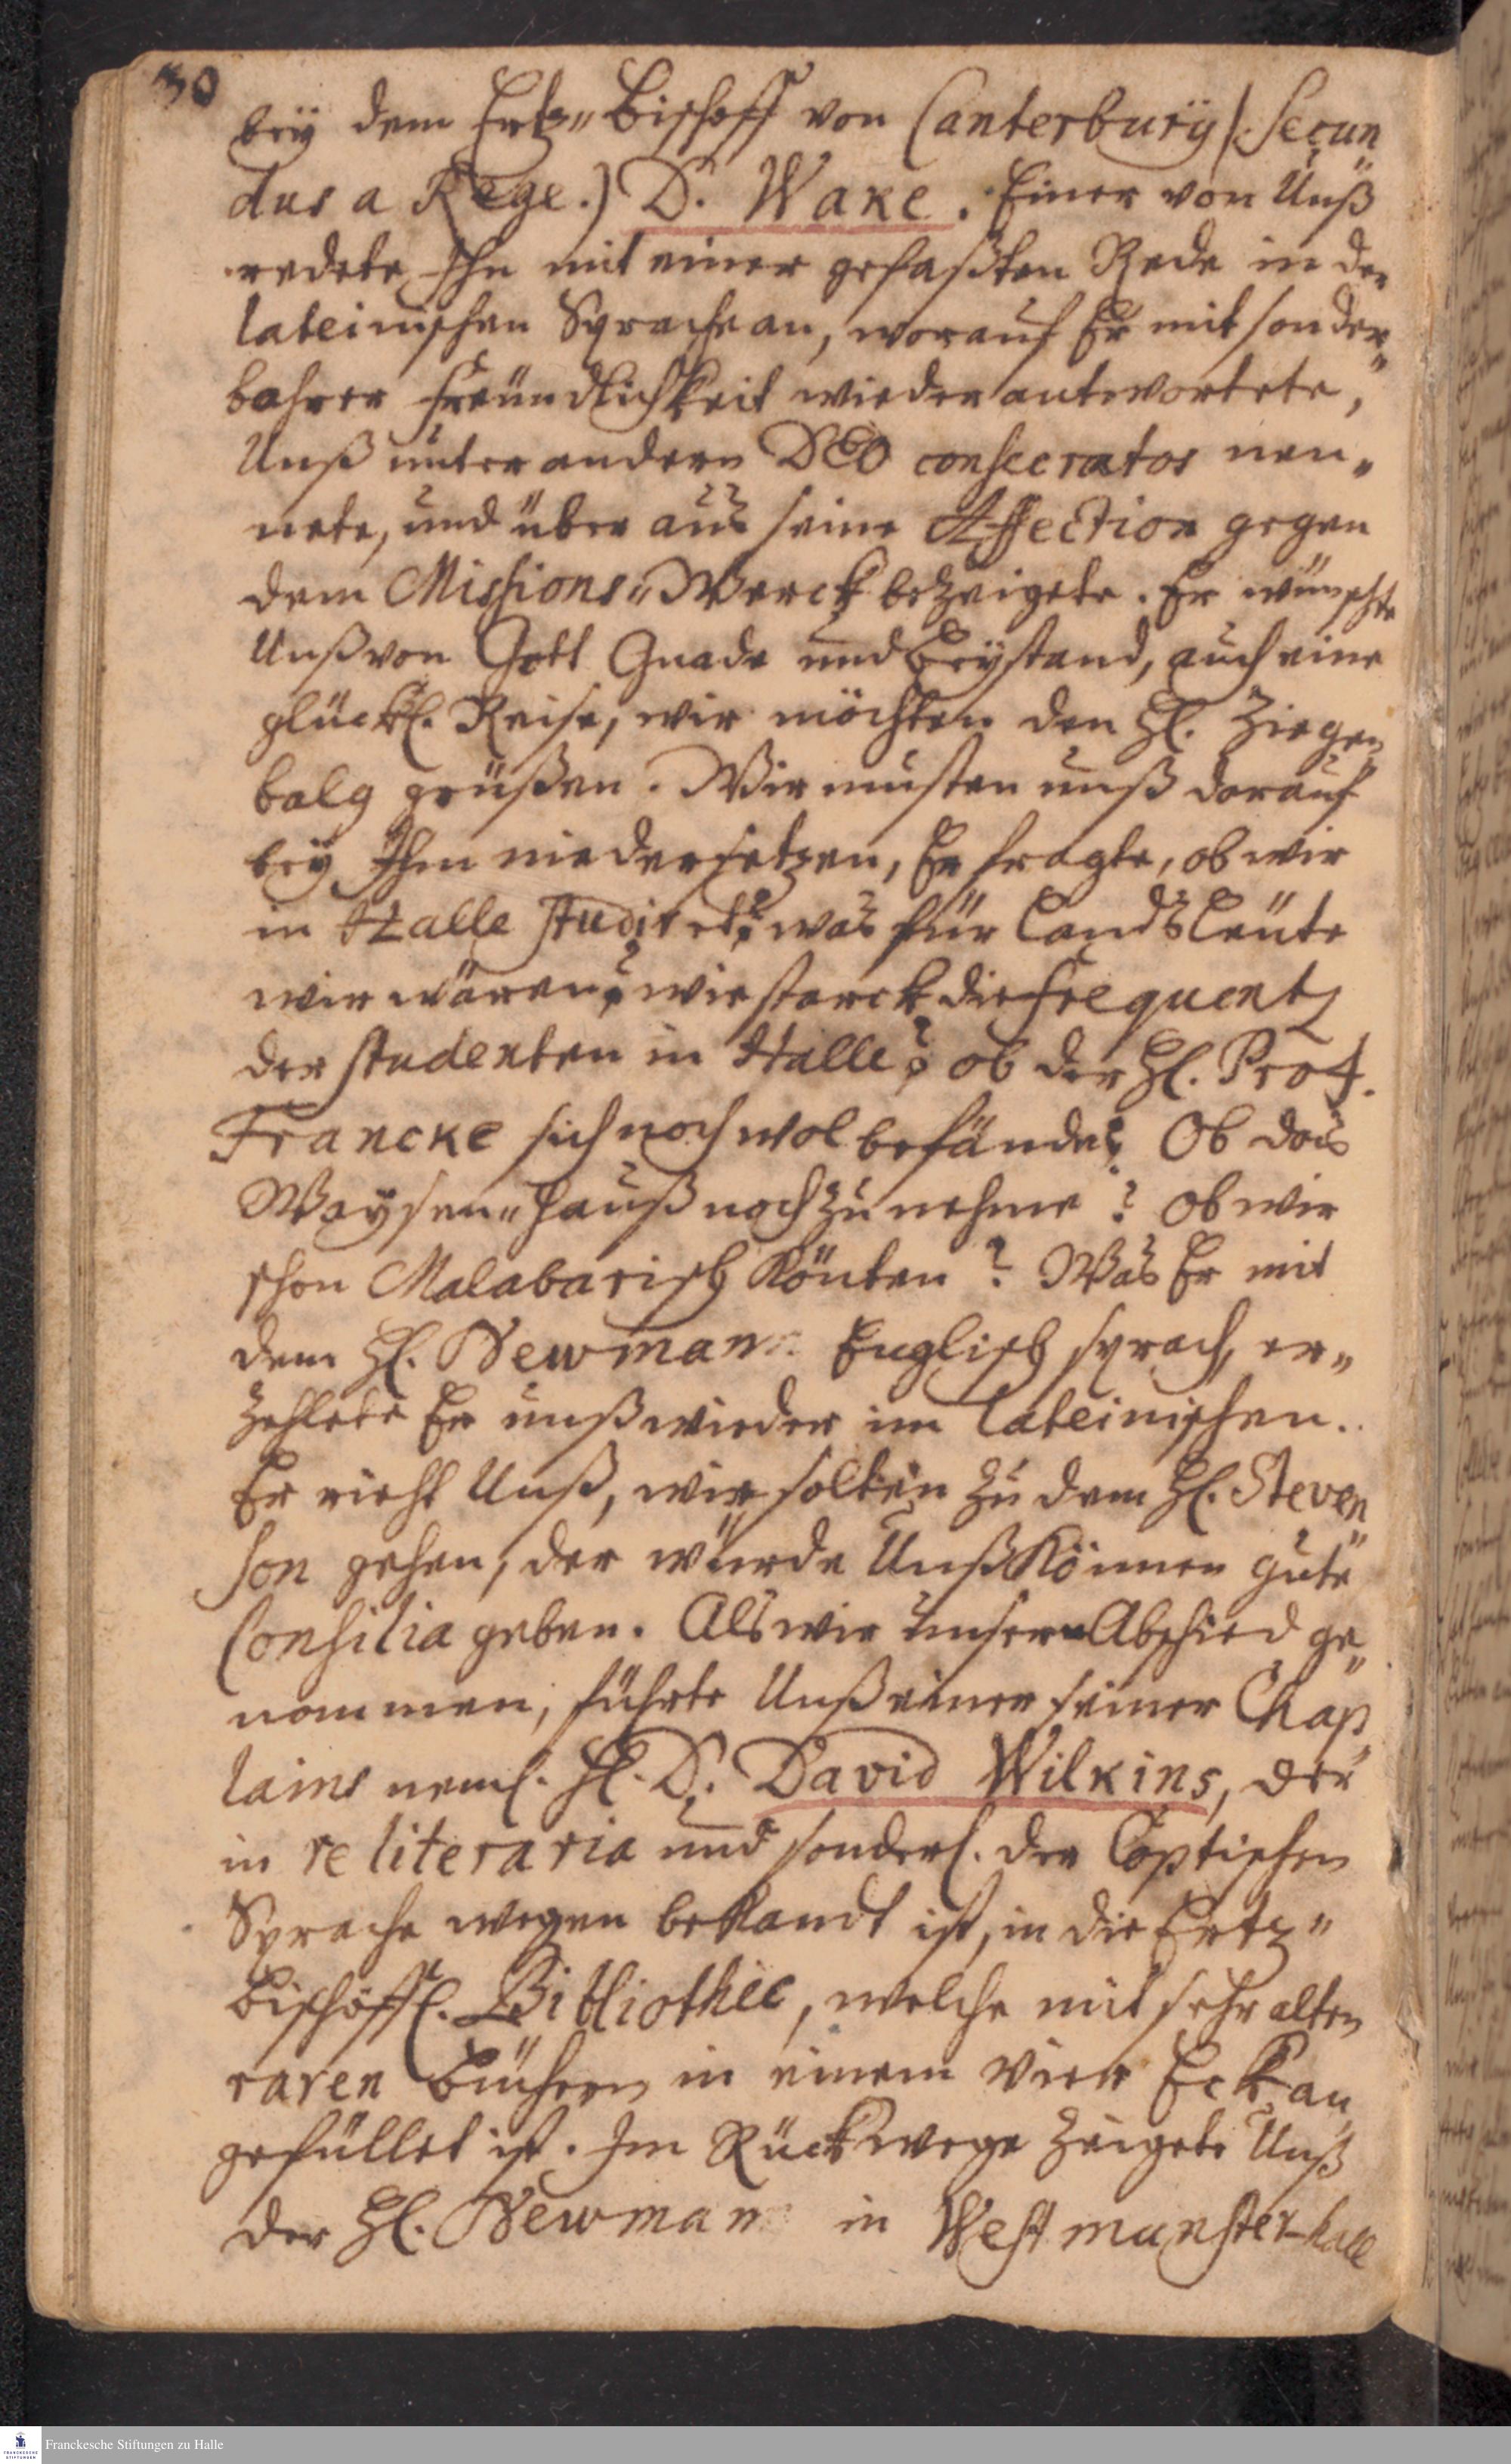 30
bey dem Ertz„Bischoff von Canterburÿ (Secun
dus a Rege.) D. Wake. Einer von Unß
redete Ihn mit einer gefaßten Rede in der
lateinischen Sprache an, worauf Er mit sonder„
bahrer Freündlichkeit wieder antwortete,
Unß unter andern DEO consecratos nen„
nete, und über aus seine Affection gegen
dem Missions„Werck bezeigete. Er wünschte
Unß von Gott Gnade und Beystand, auch eine
glückl. Reise, wir möchten den Hl. Ziegen„
balg grüßen. Wir musten unß darauf
bey Ihm niedersetzen, Er fragte, ob wir
in Halle studiret? was für Landsleüte
wir wären? wie starck die Frequentz
der studenten in Halle? ob der Hl. Prof.
Francke sich noch wol befände? Ob das
Waysen„Hauß noch zu nehme? Ob wir
schon Malabarisch könten? Was Er mit
dem Hl. Newman Englisch sprach, er„
zehlete Er unß wieder im Lateinischen.
Er rieht Unß, wir solten zu dem Hl. Steven„
son gehen, der würde Unß können gute
Consilia geben. Als wir unsern Abschied ge„
nommen, führte Unß einer seiner Chap„
lains neml. Hl. D. David Wilkins, der
in re literaria und sonderl. der Coptischen
Sprache wegen bekandt ist, in die Ertz„
Bischöffl. Bibliothec, welche mit sehr alten
raren Büchern in einem Vier Eck an„
gefüllet ist. Im Rückwege zeigete Unß
der Hl. Newman in Westmunster-hall
Franckesche Stiftungen zu Halle